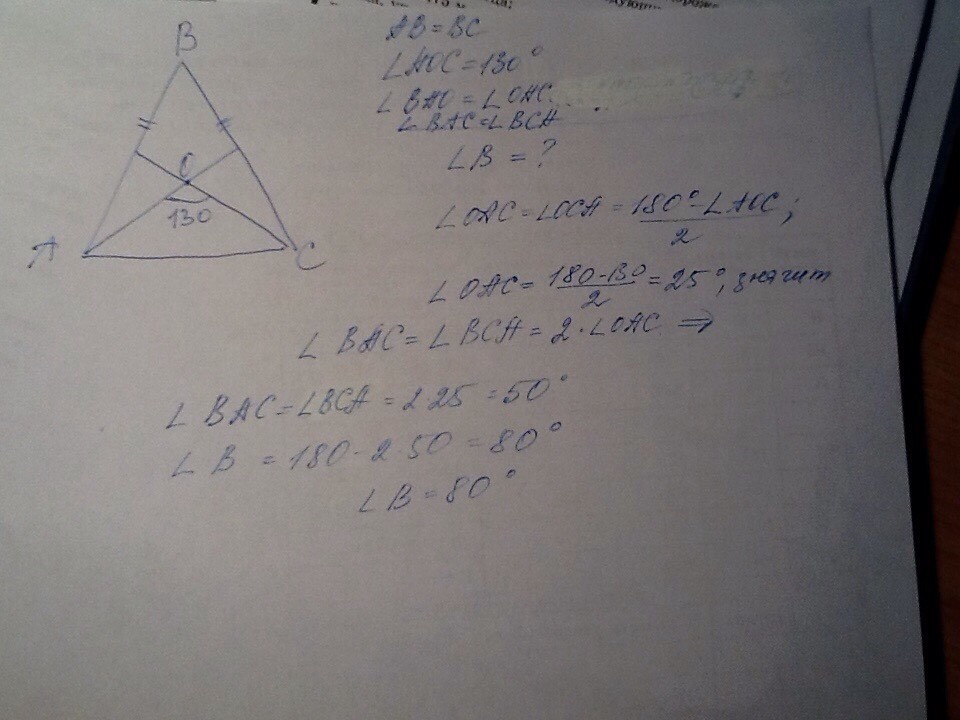 B
O
130
A
C
AB = BC
∠AOC = 130°
∠BAO = ∠OAC.
∠BAC = ∠BCA
∠B = ?
∠OAC = ∠OCA = (180° - ∠AOC) / 2 ;
∠OAC = (180 - 130) / 2 = 25°, значит
∠BAC = ∠BCA = 2 · ∠OAC ⇒
∠BAC = ∠BCA = 2 · 25 = 50°
∠B = 180 - 2 · 50 = 80°
∠B = 80°